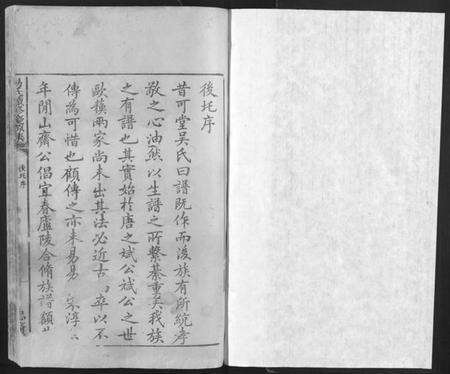 後圫序
昔可堂吳氏曰譜既作而後族有所統序
敬之心油然以生譜之所繫綦重矣我族
之有譜也其實始於唐之斌公斌公之世
歐蘇兩家尚未出其法必近古 卒以不
傳為可惜也顧傳之亦未易易 宋淳
年間山齋公倡宜春廬陵合脩族譜
後圫序